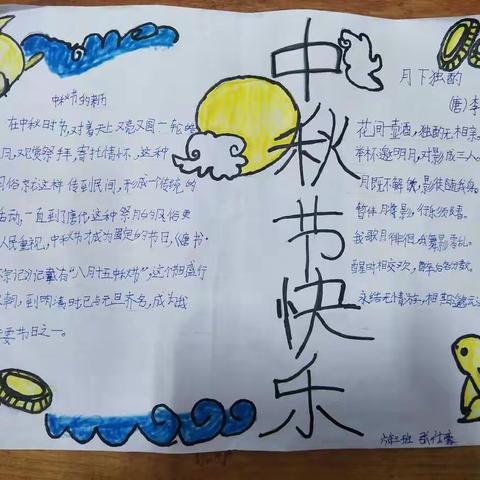 中秋节快乐
中秋节的来历
在中秋时节,对着天上又亮又圆一轮皓
月,观赏祭拜,寄托情怀,这种
习俗就这样传到民间,形成一个传统的
活动,一直到了唐代,这种祭月的风俗更
人民重视,中秋节才成为固定的节日,《唐书·
宗记》记载有“八月十五中秋节”,这个节日盛行
宋朝,到明清时已与元旦齐名,成为我
要节日之一。
月下独酌
(唐)李
花间一壶酒,独酌无相亲。
举杯邀明月,对影成三人。
月既不解饮,影徒随我身。
暂伴月将影,行乐须春。
我歌月徘徊,我舞影零乱。
醒时相交欢,醉后各分散。
永结无情游,相期邈云
六年二班 张